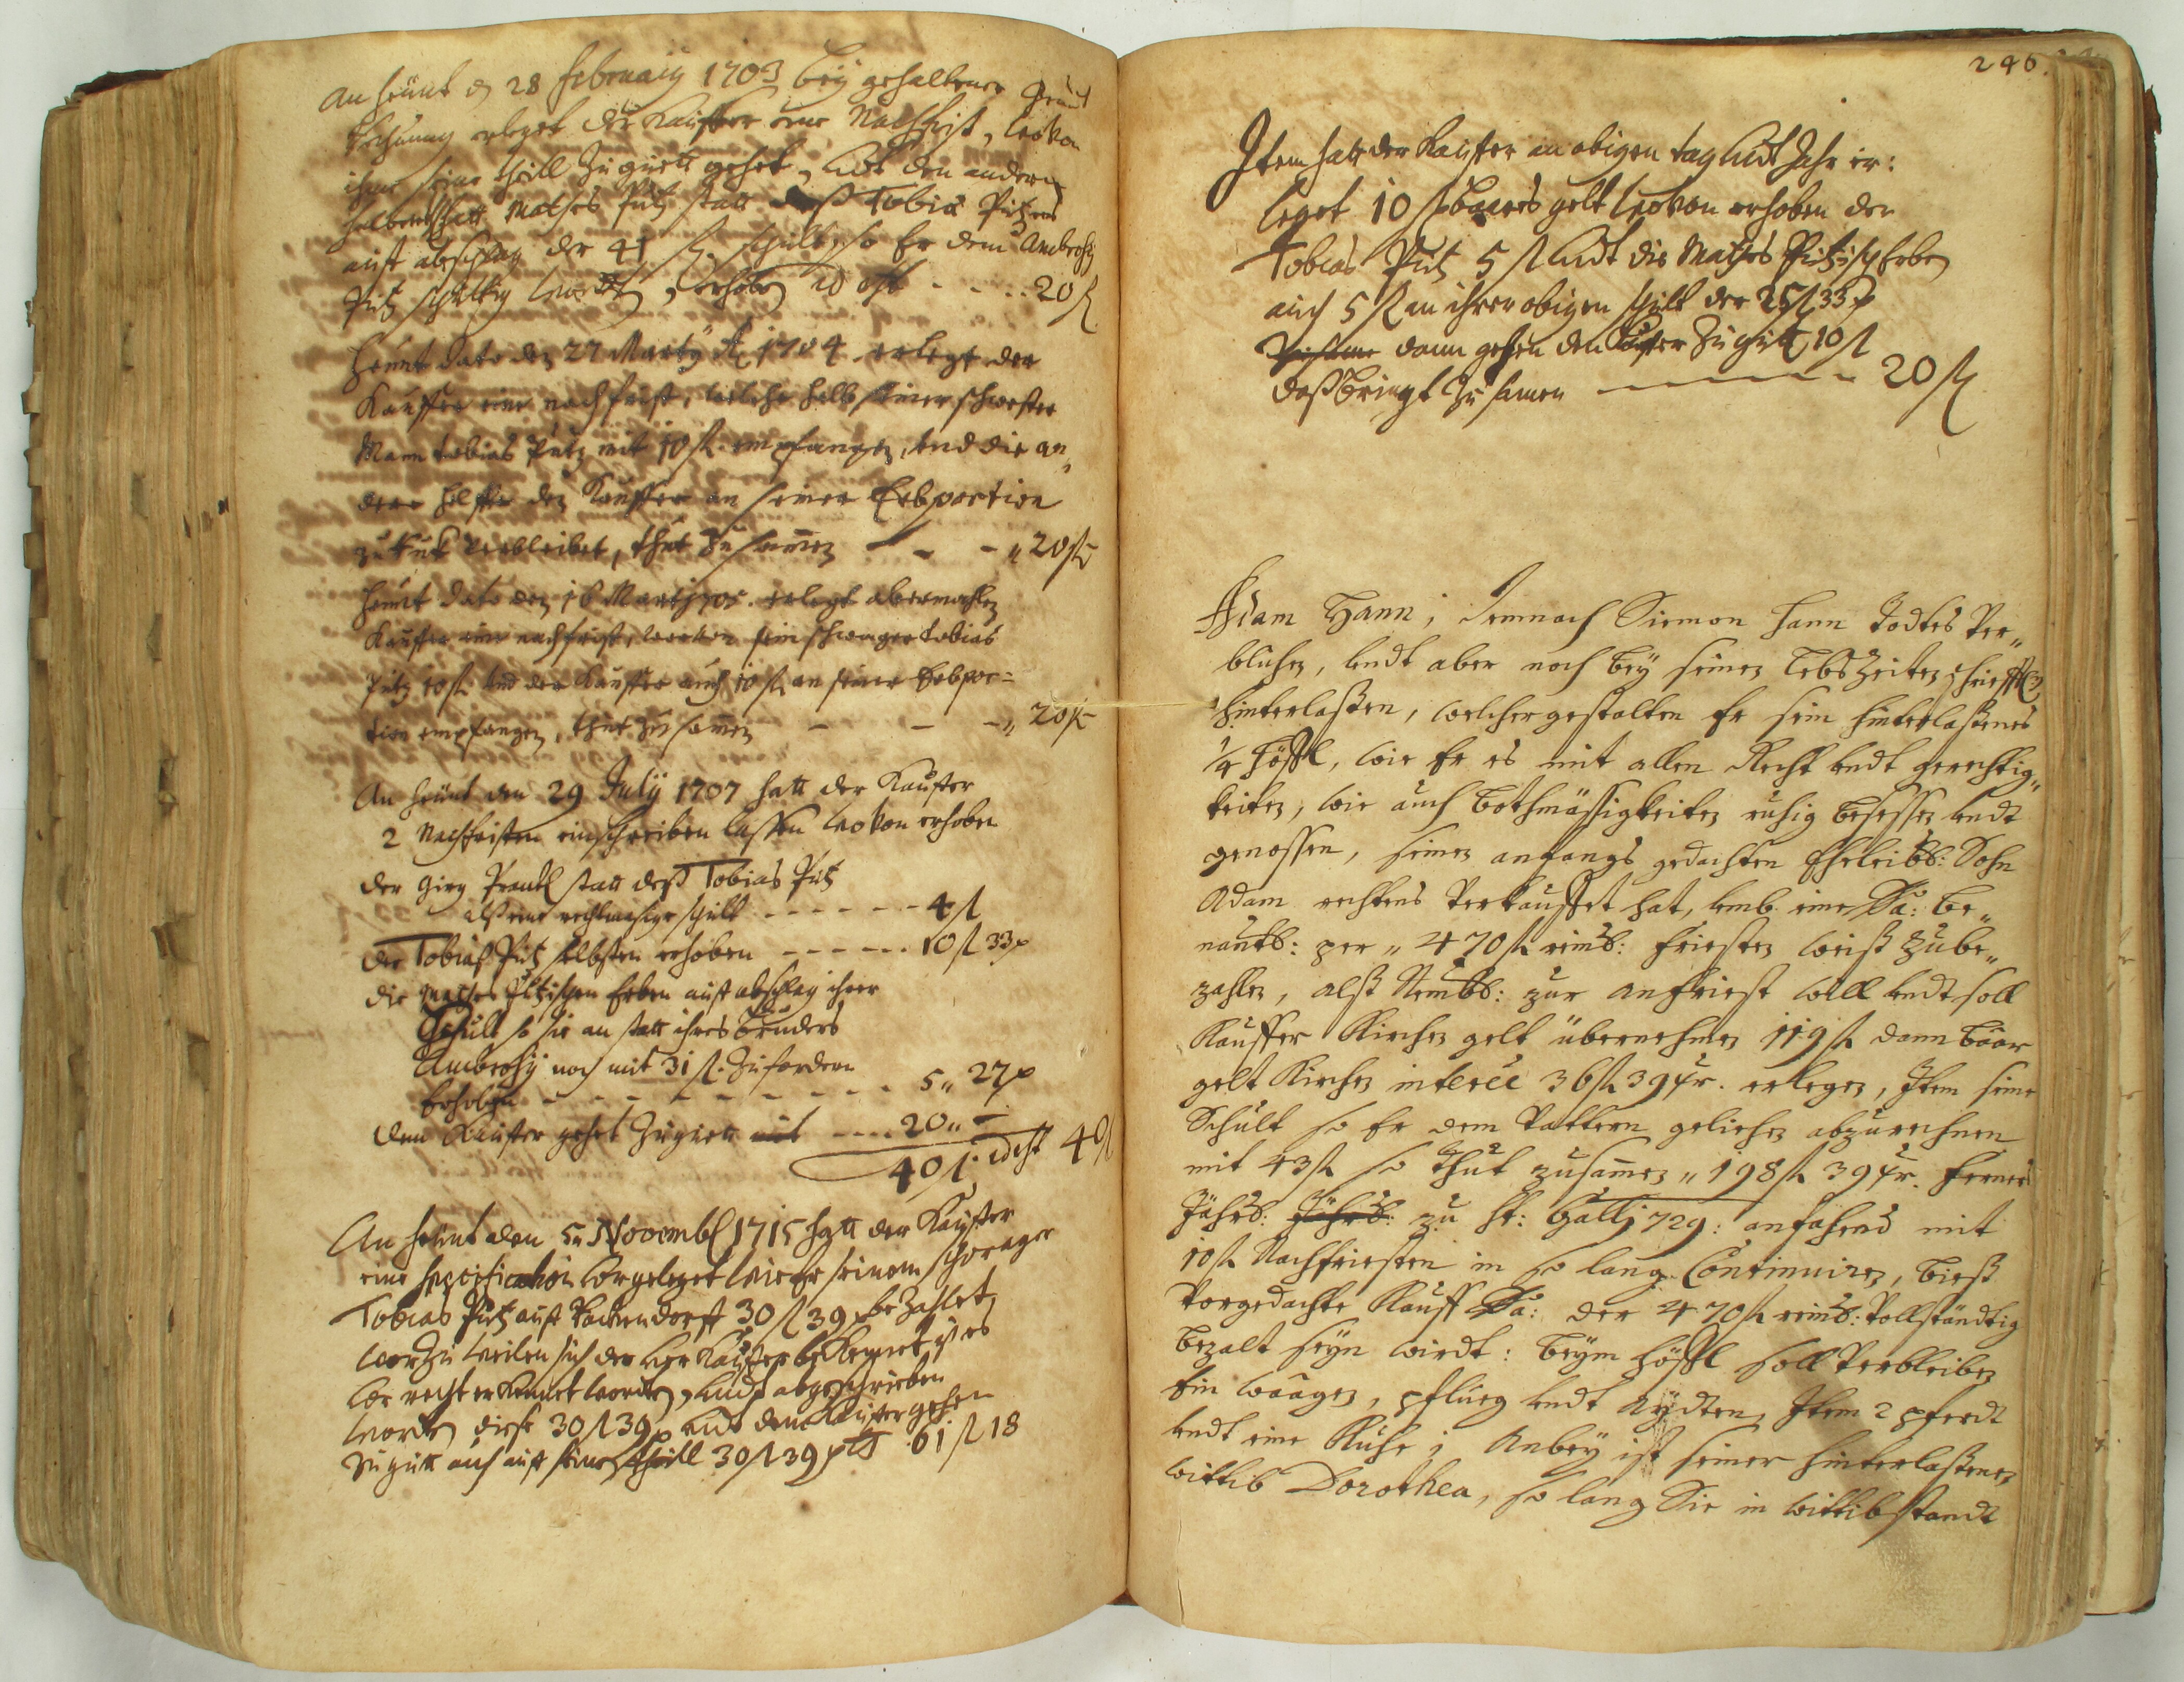 An heünt den 28 Februarij 1703 beÿ gehaltener Grund
Rechnung erleget der Kauffer eine Nachfrist, wovon
ihme seine theill zu guett gehet, undt den andern
halben theill Mathes Pütz statt deß Tobias Pützes
auff abschlag der 41 fl. schult, so Er dem Ambrosÿ
Pütz schultig worden, erhoben id est - - - - 20 fl
Heünt dato den 27 Martÿ A 1704 erlegt der
Kauffer eine nachfrist, welche halb seiner schwester
Mann tobias Pütz mit 10 fl. empfangen, und die an„
dere helffte den Kauffer an seiner Erbportion
zu gut verbleibet, thut zusamen - - - „ 20 fl
Heünt dato den 16 Martÿ 705. erlegt abermahlen
Kauffer eine nachfrist, wovon sein schwager tobias
Pütz 10 fl. und der Kauffer auch 10 fl. an seiner Erbpor=
tion empfangen, thut zusamen - - - „ 20 fl
An heünt den 29 Julÿ 1707 hatt der Kauffer
2 Nachfristen einschreiben lassen wovon erhoben
der Girg Prantl statt deß Tobias Pütz
alß eine rechtmesige schult - - - - - - 4 fl
der Tobiaß Pütz selbsten erhoben - - - - - 10 fl 33 x
die Mathes Pützischen Erben auff abschlag ihrer
Schult so sie an statt ihres Bruders
Ambrosÿ noch mit 31 fl. zu fordern
Erhoben - - - - - - - - - 5 „ 27 x
dem Kauffer gehet zu guett mit - - - - 20 „ -
40 fl. id est 40 fl
An heünt den 5ten Novembl 1715 hatt der Kauffer
eine specification vorgeleget wie Er seinem schwager
Tobias Pütz auß 30 fl 39 x bezahlet
worzu weilen sich der Kauffer bekennet ist es
vor recht erkennet worden, undt abgeschrieben
worden diese 30 fl 39 x undt dem Kauffer gehen
zu gutt auch auff seinen theill 30 fl 39 x 61 fl 18
246.
Item hatt der Kauffer an obigen tag undt Jahr er:
leget 10 fl bares gelt wovon erhoben der
Tobias Pütz 5 fl undt die Mathes Pützisch Erben
auch 5 fl an ihrer obigen schult der 25 fl 33 x
dann gehen den Kauffer zu gutt 10 fl
daß bringt zu samen - - - - - - 20 fl
Adam Hann; Demnach Siemon Hann Todtes Ver„
blichen, undt aber noch beÿ seinen Lebszeiten schriefftl:
hinterlaßen, welcher gestalten Er sein hinterlaßenes
1/4 Höffl, wie Er es mit allen Recht undt gerechtig„
keiten, wie auch Bothmässigkeiten ruhig besessen undt
genossen, seinen anfangs gedachten Eheleibl: Sohn
Adam rechtens Verkauffet hat, umb eine Sa: be„
nantl: per „ 470 fl reinl: friesten weiß zube„
zahlen, alß Nembl: zur anfriest will undt soll
Kauffer Kirchen gelt übernehmen 119 fl dann baar
gelt Kirchen interee 36 fl 39 xr. erlegen, Item seine
Schult so Er dem Vattern geliehen abzurechnen
mit 43 fl so thut zusamen „ 198 fl 39 xr. ferners
Jährl: Jährl: zu St: Gallj 729: anfahend mit
10 fl Nachfriesten in so lang Continuiren, bieß
vorgedachte Kauff Sa: der 470 fl reinl: Vollständtig
bezalt seÿn wirdt: beÿm Höffl soll Verbleiben
Ein Waagen, pflueg undt Aÿdten, Item 2 pferdt
undt eine Kuhe; Anbeÿ ist seiner hinterlaßenen
Wittib Dorothea, so lang Sie in Wittibstandt